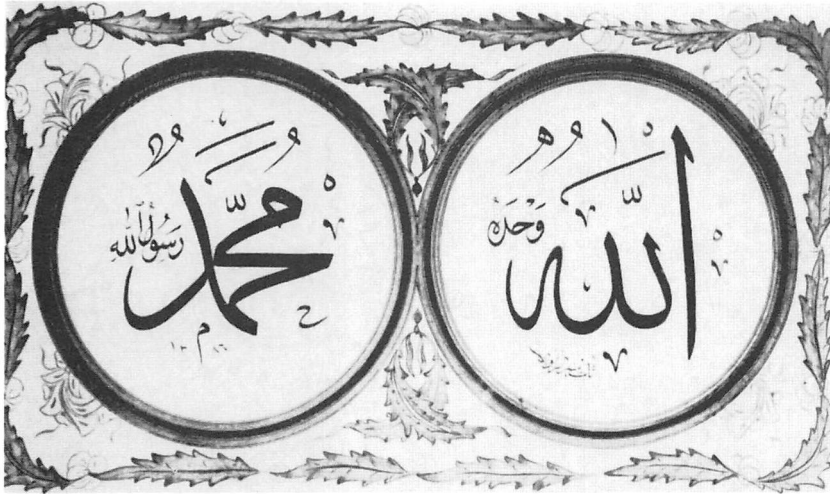 الله
وَحْدَهُ
مُحَمَّد
رَسُولُ اللهِ